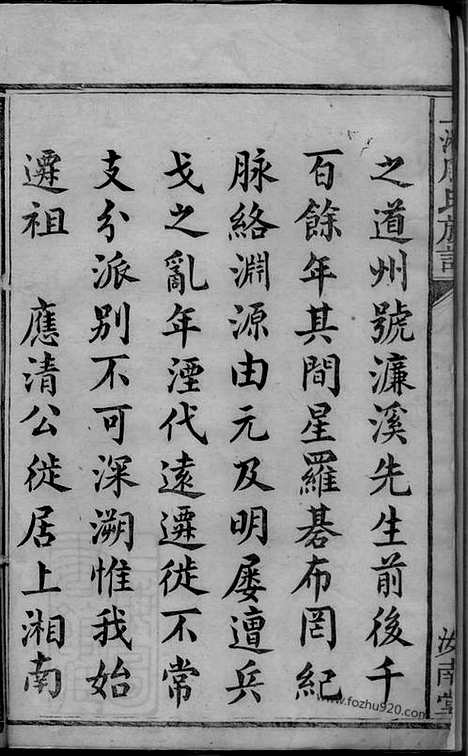 之道州號濂溪先生前後千
百餘年其間星羅碁布罔紀
脉絡淵源由元及明屡遭兵
戈之亂年湮代遠遷徙不常
支分派别不可深溯惟我始
遷祖　應清公徙居上湘南
www.fozhu920.com